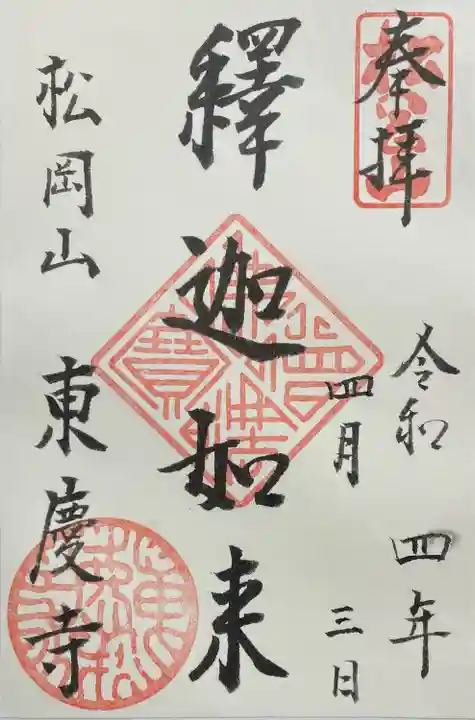 奉拝
令和四年
四月三日
釋迦如来
松岡山 東慶寺